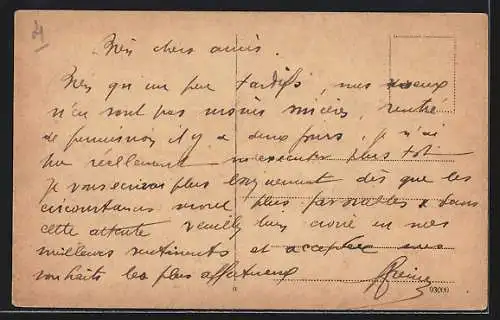 Très chers amis.
Bien qu'un peu tardifs, mes voeux
n'en sont pas moins sincères, rentré
de permission il y a deux jours, je n'ai
pu réellement m'exécuter plus tôt.
Je vous écrirai plus longuement dès que les
circonstances me seront plus favorables & dans
cette attente veuillez bien croire en mes
meilleurs sentiments et accepter mes
souhaits les plus affectueux
93000